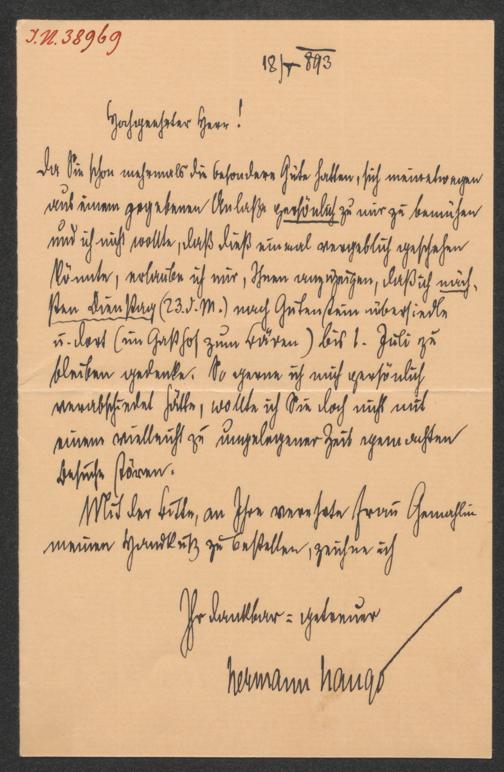 I.N. 38969
18/V 893
Hochgeehrter Herr!
Da Sie schon mehrmals die besondere Güte hatten, sich meinetwegen
aus einem gegebenen Anlaße persönlich zu mir zu bemühen
und ich nicht wollte, daß dieß einmal vergeblich geschehen
könnte, erlaube ich mir, Ihnen anzuzeigen, daß ich näch-
sten Dienstag (23. d. M.) nach Gutenstein übersiedle
u. dort (im Gasthof zum Bären) bis 1. Juli zu
bleiben gedenke. So gerne ich mich persönlich
verabschiedet hätte, wollte ich Sie doch nicht mit
einem vielleicht zu ungelegener Zeit gemachten
Besuche stören.
Mit der Bitte, an Ihre verehrte Frau Gemahlin
meinen Handkuß zu bestellen, zeichne ich
Ihr dankbar = getreuer
Hermann Hango